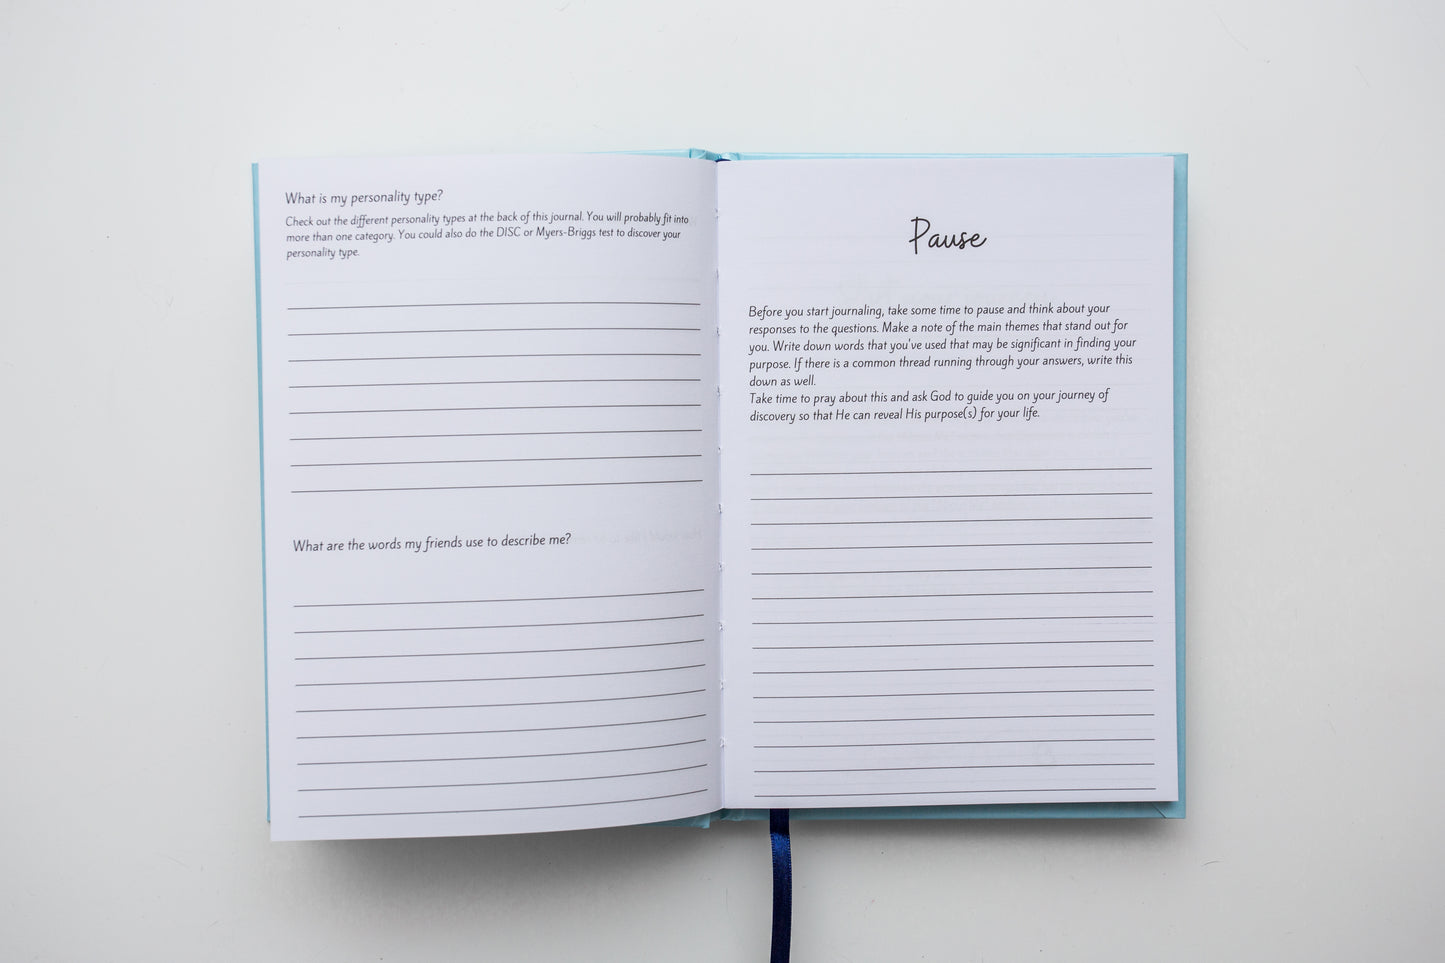 What is my personality type?
Check out the different personality types at the back of this journal. You will probably fit into
more than one category. You could also do the DISC or Myers-Briggs test to discover your
personality type.
What are the words my friends use to describe me?
Pause
Before you start journaling, take some time to pause and think about your
responses to the questions. Make a note of the main themes that stand out for
you. Write down words that you've used that may be significant in finding your
purpose. If there is a common thread running through your answers, write this
down as well.
Take time to pray about this and ask God to guide you on your journey of
discovery so that He can reveal His purpose(s) for your life.